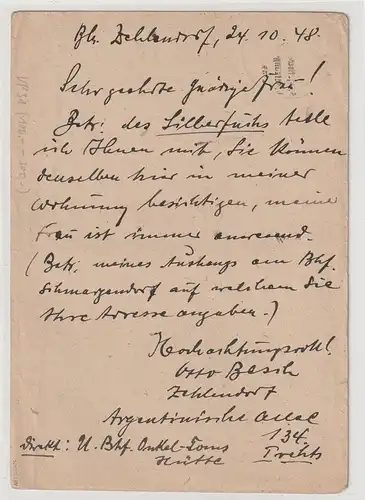 Bln. Zehlendorf, 24.10.48.
Sehr geehrte Gnädige Frau!
Betr. des Silberfuchs teile
ich Ihnen mit, Sie können
denselben hier in meiner
Wohnung besichtigen, meine
Frau ist immer anwesend.
(Betr. meines Aushangs am Bhf.
Schmargendorf auf welchem Sie
Ihre Adresse angaben.)
Hochachtungsvoll.
Otto Besch
Zehlendorf
Argentinische Allee
134.
I rechts
direkt: U. Bhf. Onkel-Toms
Hütte